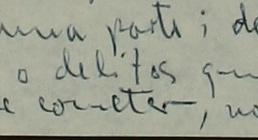 una parte; de
o delitos que
e cometer, no